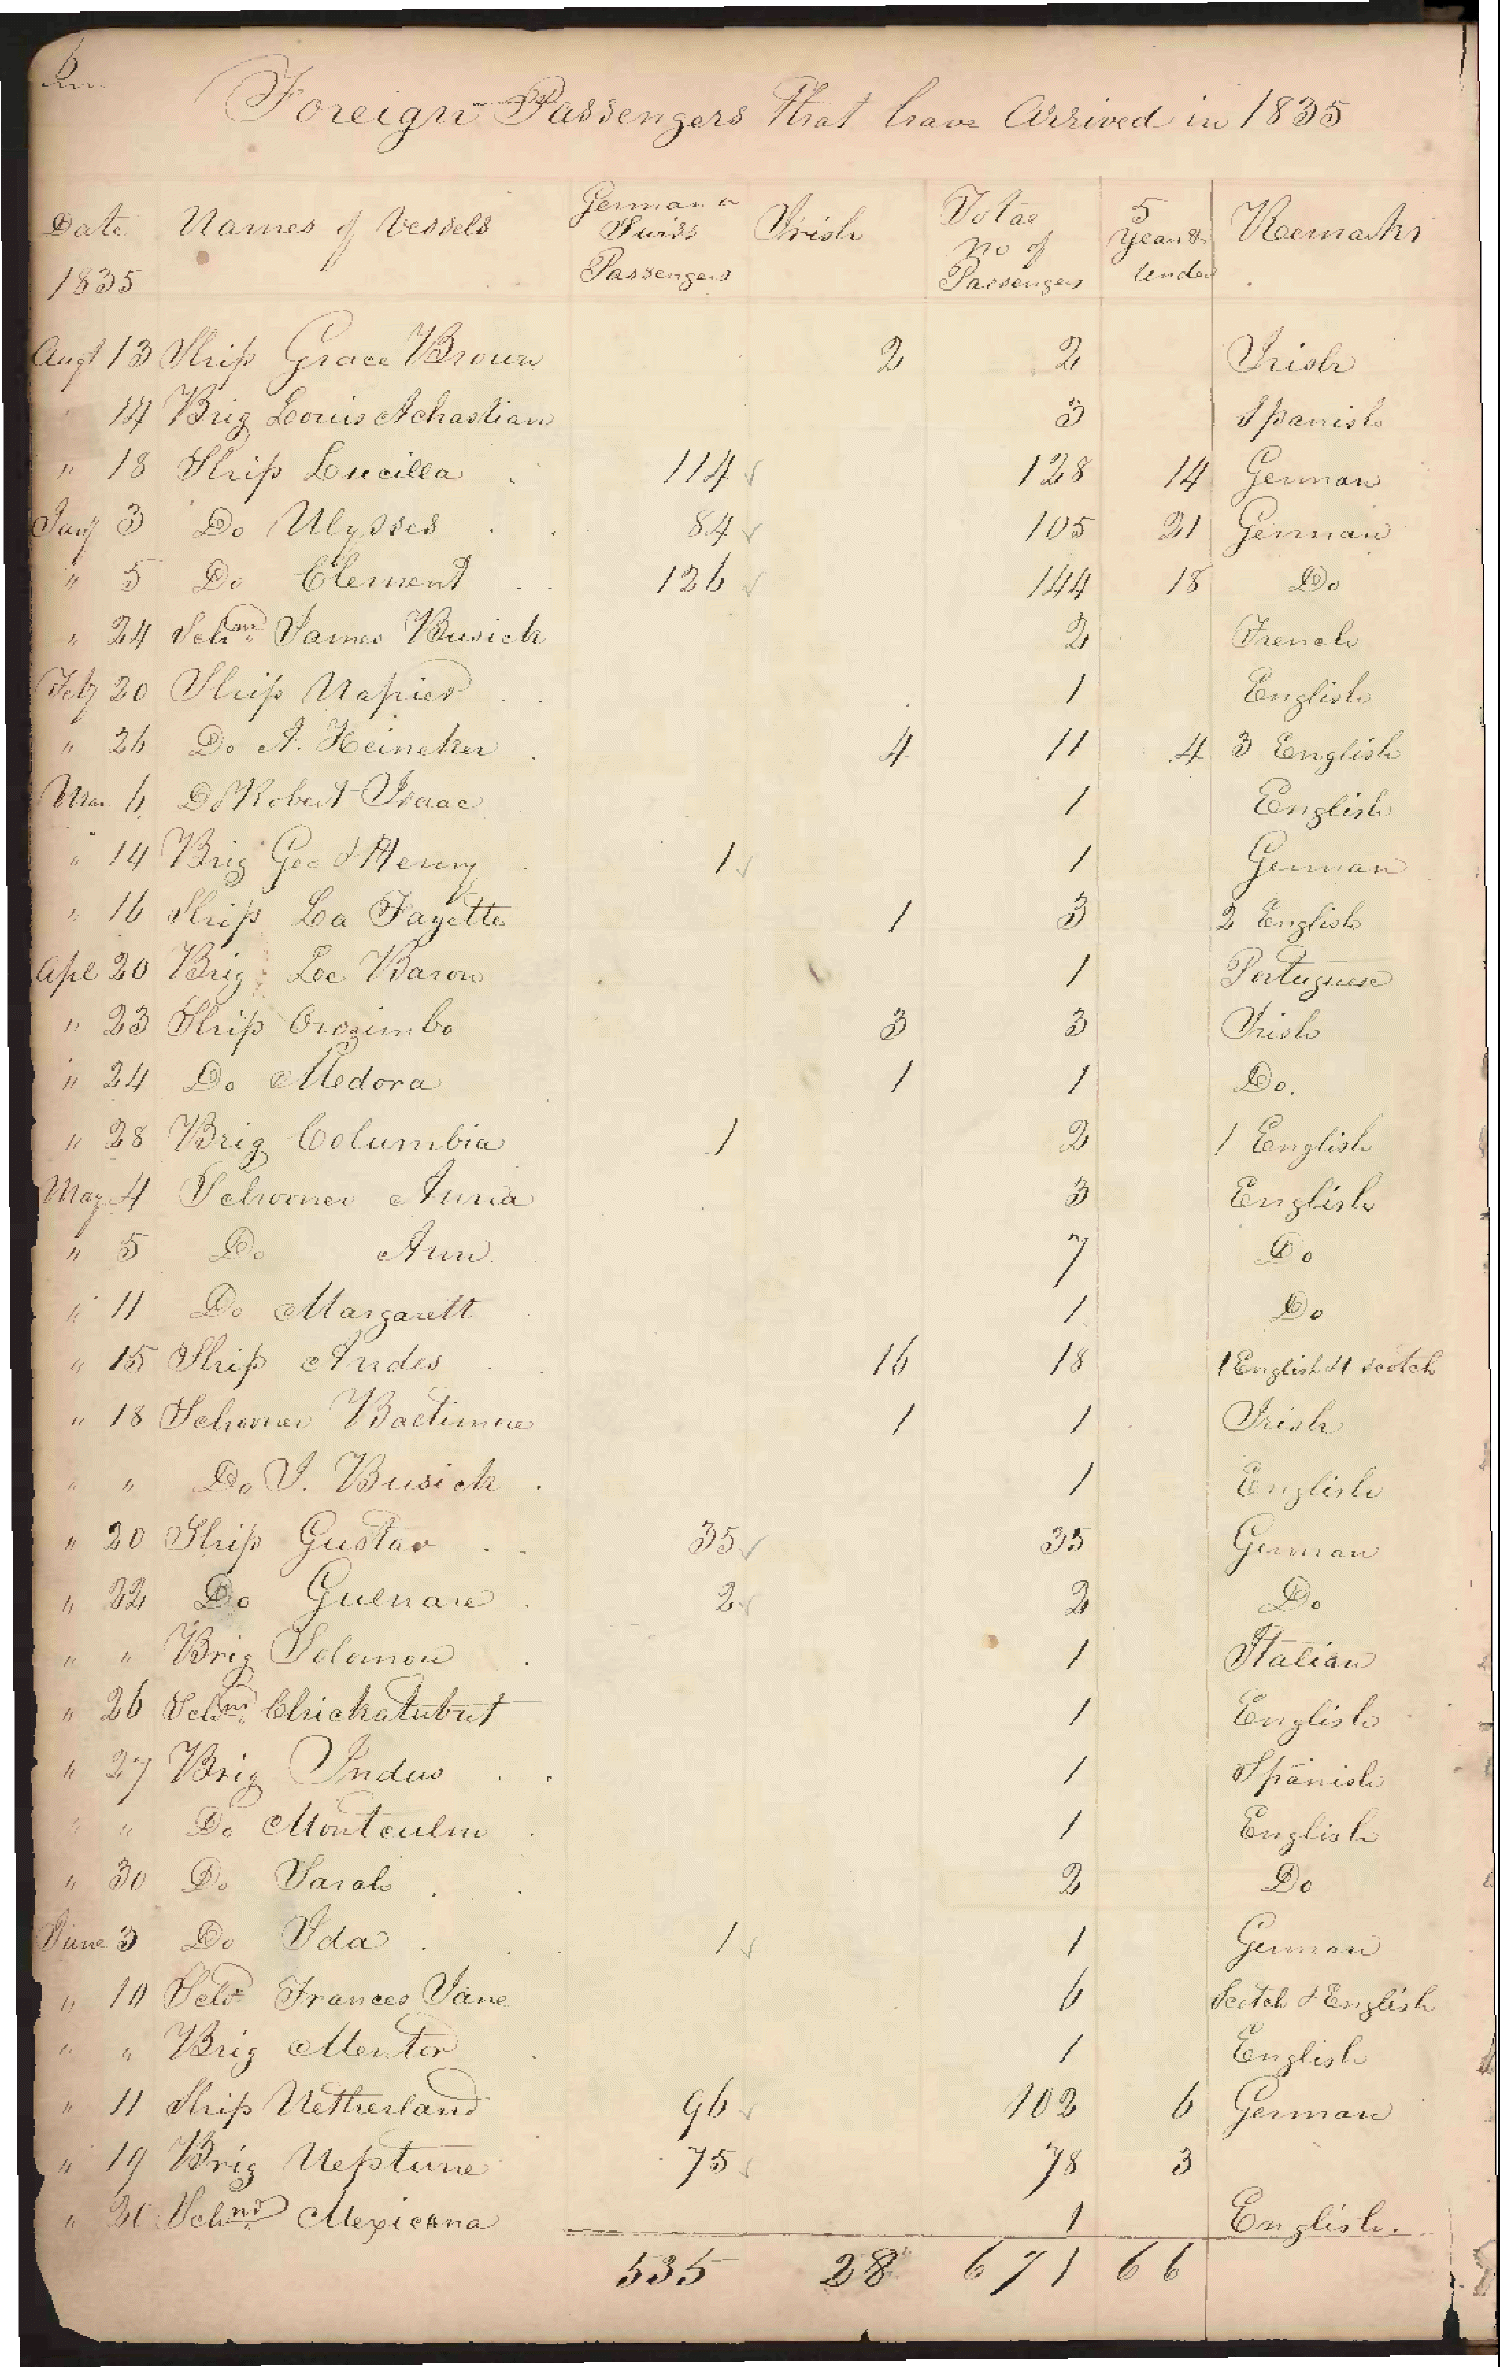 6
Foreign Passengers That have Arrived in 1835
Date Names of Vessels German or Swiss Passengers Irish Total no of Passengers 5 Years & Under Remarks
1835
Augt 13 Ship Grace Brown 2 2 Irish
14 Brig Louis Achastian 3 Spanish
" 18 Ship Lucilla 114 128 14 German
Jany 3 Do Ulysses 84 105 21 German
" 5 Do Clement 126 144 18 Do
" 24 Schnr James Busick 2 French
Feby 20 Ship Napier 1 English
" 26 Do A. Heineken 4 11 4 3 English
Mar 6 Do Robert Isaac 1 English
" 14 Brig Geo & Henry 1 1 German
" 16 Ship La Fayette 1 3 2 English
Apl 20 Brig Lee Baron 1 Portuguese
" 23 Ship Orozimbo 3 3 Irish
" 24 Do Medora 1 1 Do.
" 28 Brig Columbia 1 2 1 English
May 4 Schooner Anna 3 English
" 5 Do Ann 7 Do
" 11 Do Margarett 1 Do
" 15 Ship Andes 16 18 1 English & 1 Scotch
" 18 Schooner Baltimore 1 1 Irish
" " Do J. Busick 1 English
" 20 Ship Gustav 35 35 German
" 22 Do Gulnare 2 2 Do
" " Brig Solomon 1 Italian
" 26 Schnr Chickatubut 1 English
" 27 Brig Indus 1 Spanish
" " Do Montculm 1 English
" 30 Do Sarah 2 Do
June 3 Do Ida 1 1 German
" 10 Schr Frances Jane 6 Scotch & English
" " Brig Mentor 1 English
" 11 Ship Netherland 96 102 6 German
" 19 Brig Neptune 75 78 3
" 20 Schnr Mexicana 1 English.
535 28 671 66